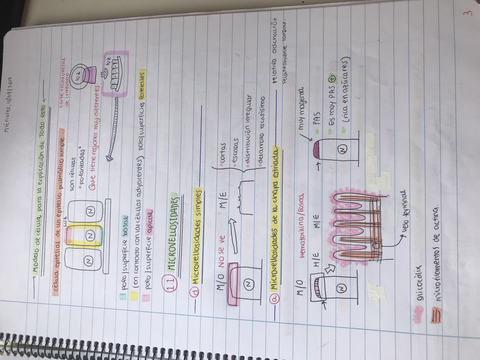 3
→ Modelo de célula, para la explicación de todo esto ←
célula epitelial de un epitelio prismático simple
son células
"polarizadas"
Que tiene regiones muy diferentes
N
N
N
polo/superficie basal
(en contacto con las células adyacentes) polo/superficies laterales
polo/superficie apical
1.1 MICROVELLOSIDADES
① Microvellosidades simples
M/O NO SE VE
M/E
cortas
escasas
distribución irregular
desarrollo
N
② Microvellosidades de la chapa estriada
M/O
Hematoxilina/Eosina
M/E
M/E
N
muy magenta
PAS
Es muy PAS +
(rica en azúcares)
N
velo terminal
glicocálix
microfilamentos de actina